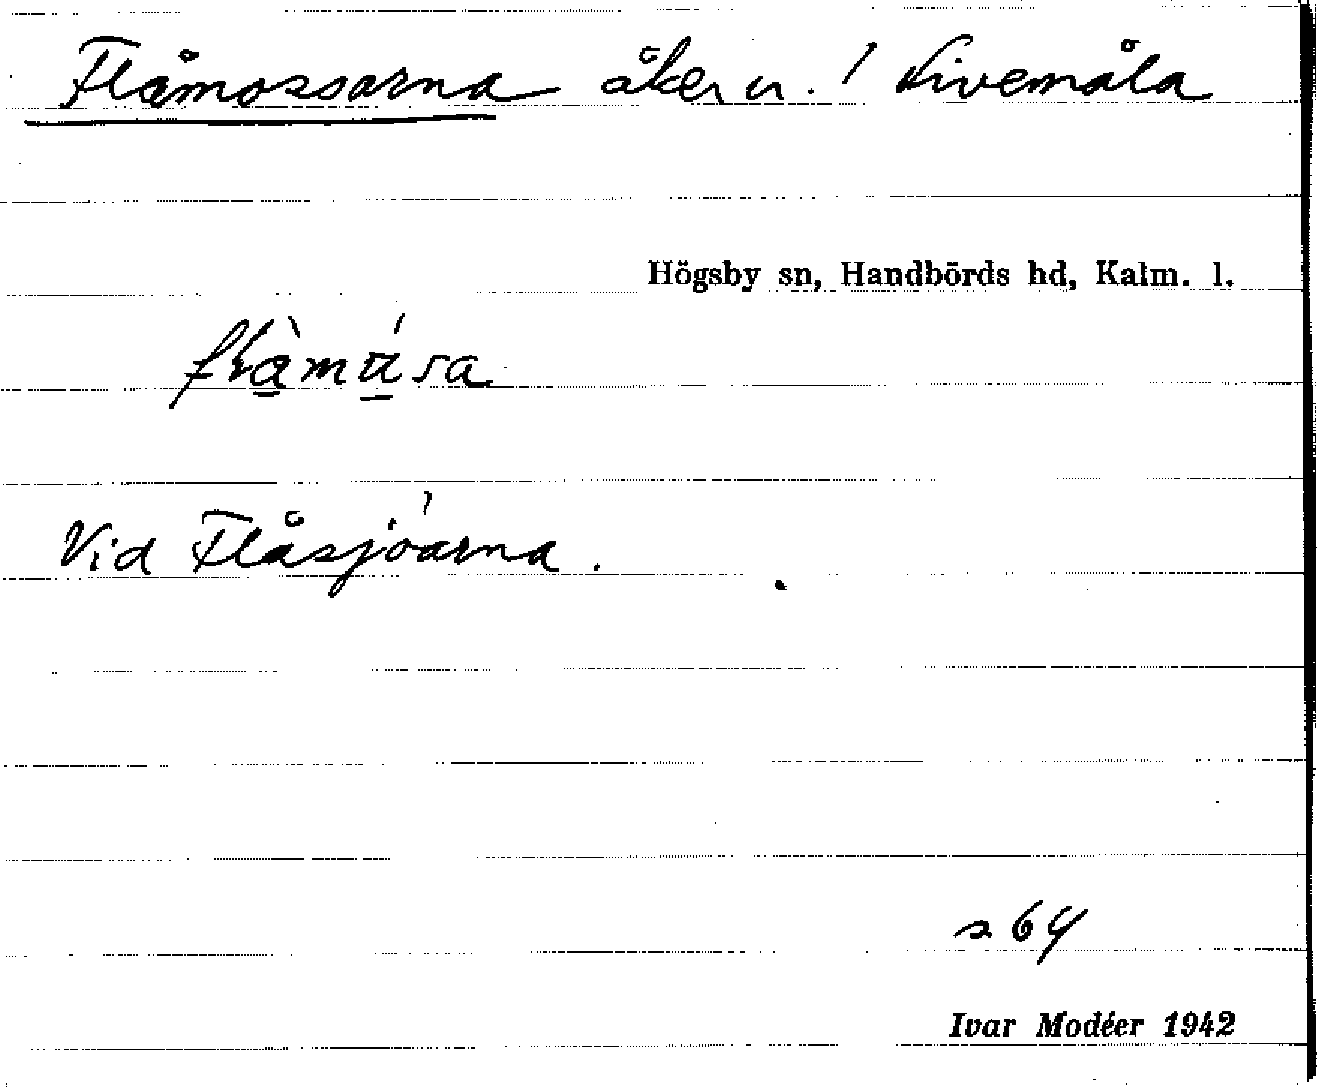 Flåmossarna åker n. / Livemåla
Högsby sn, Handbörds hd, Kalm. l.
Vid Flåsjöarna.
s 64
Ivar Modéer 1942